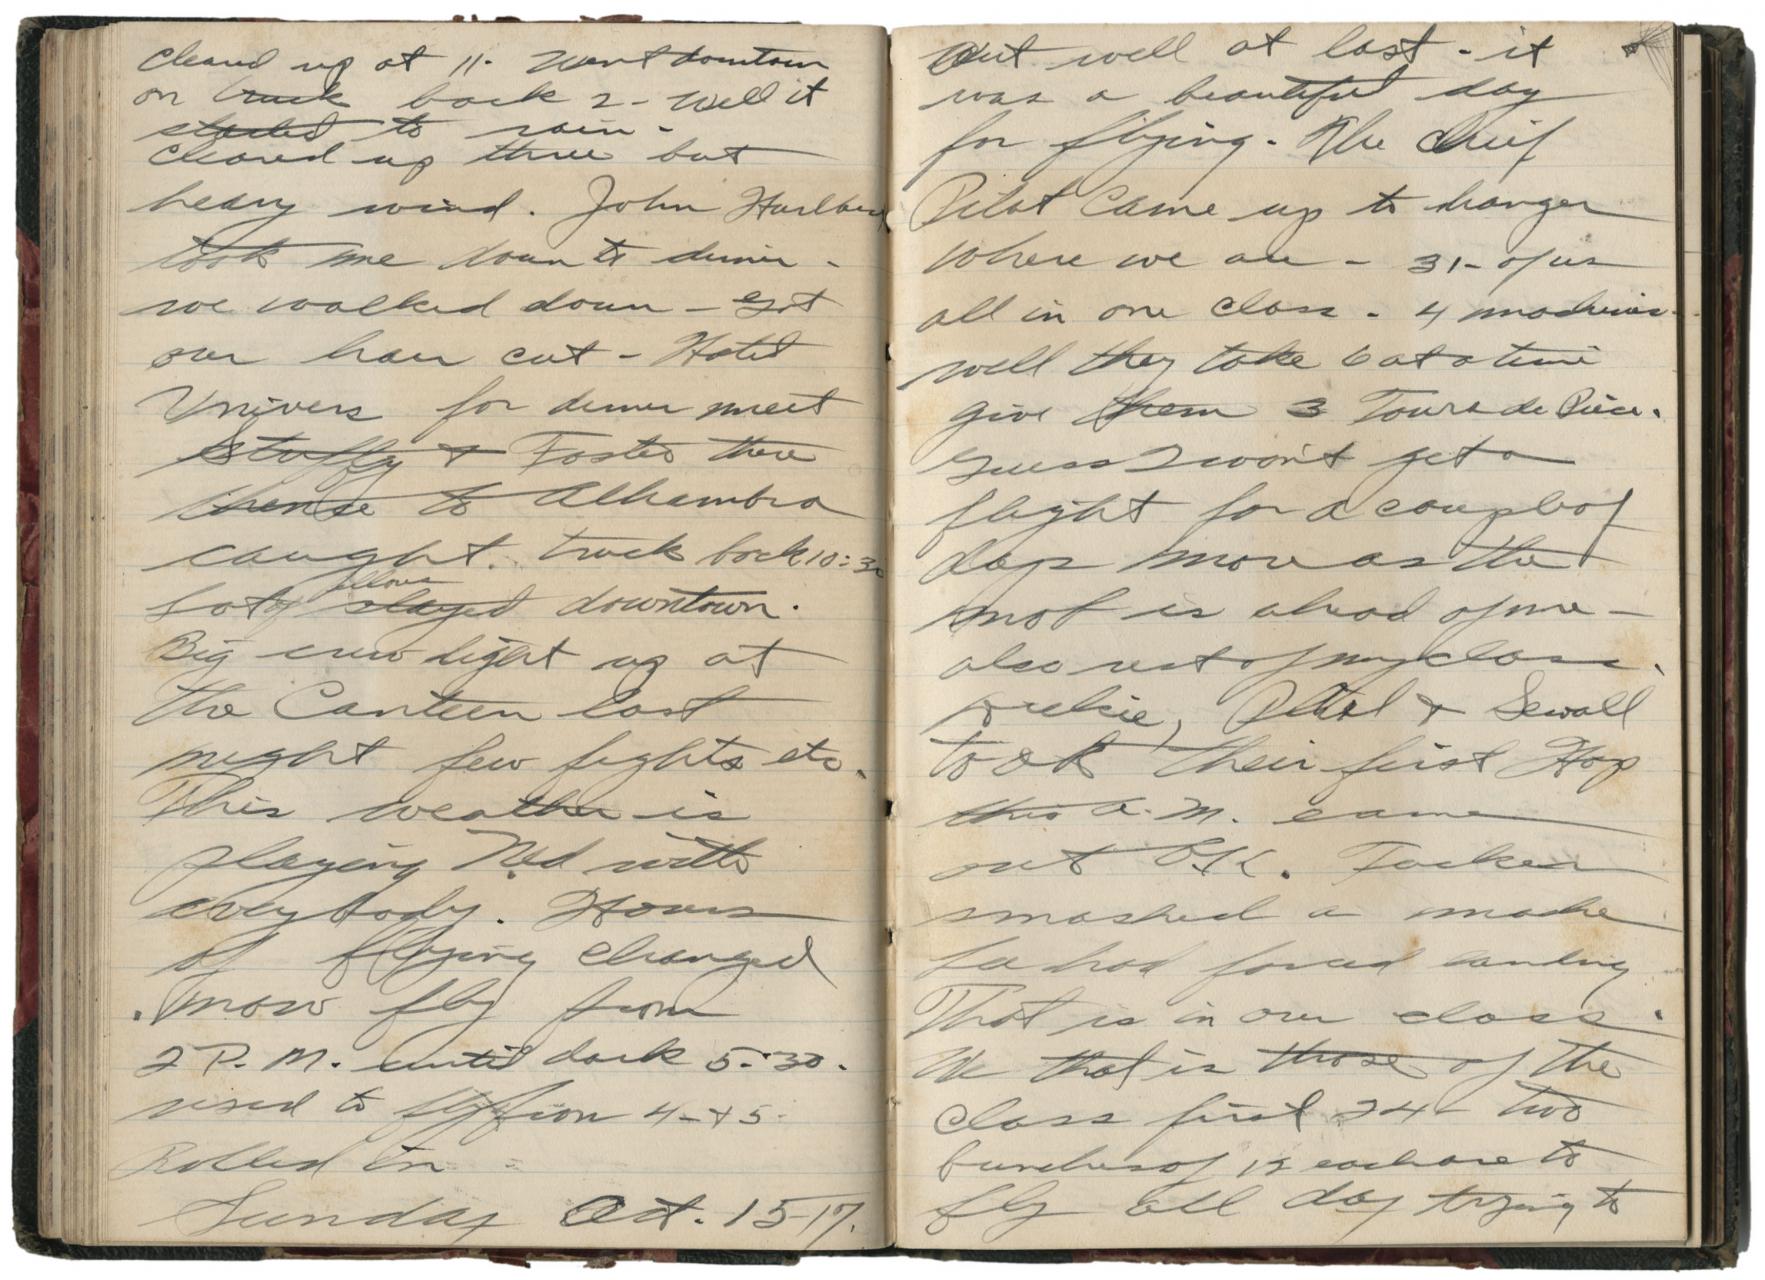 cleared up at 11. Went downtown
on truck back 2 - Well it
started to rain -
cleared up three but
heavy wind. John Hurlburt
took me down to dinner -
we walked down - Got
our hair cut - Hotel
Univers for dinner meet
Stuffy & Foster there
thense to Alhambra
caught. truck back 10:30
Lot of fellows stayed downtown.
Big crew light up at
the Canteen last
night few fights etc.
This weather is
playing Ned with
everybody. Hours
of flying changed
now fly from
2 P.M. until dark 5:30.
used to fly from 4 - & 5.
Rolled in
Sunday Oct. 15-17.
But well at last - it
was a beautiful day
for flying. The chief
Pilot came up to hanger
where we are - 31 - of us
all in one class - 4 machines -
well they take 6 at a time
give them 3 Tours de Piece.
Guess I won't get a
flight for a couple of
days more as the
mob is ahead of me -
also rest of my class.
took their first Hop
this A.M. came
out O.K. Tucker
smashed a machine
Lee had forced landing
That is in our class.
We that is those of the
class first 24 - two
bunches of 12 each are to
fly all day trying to